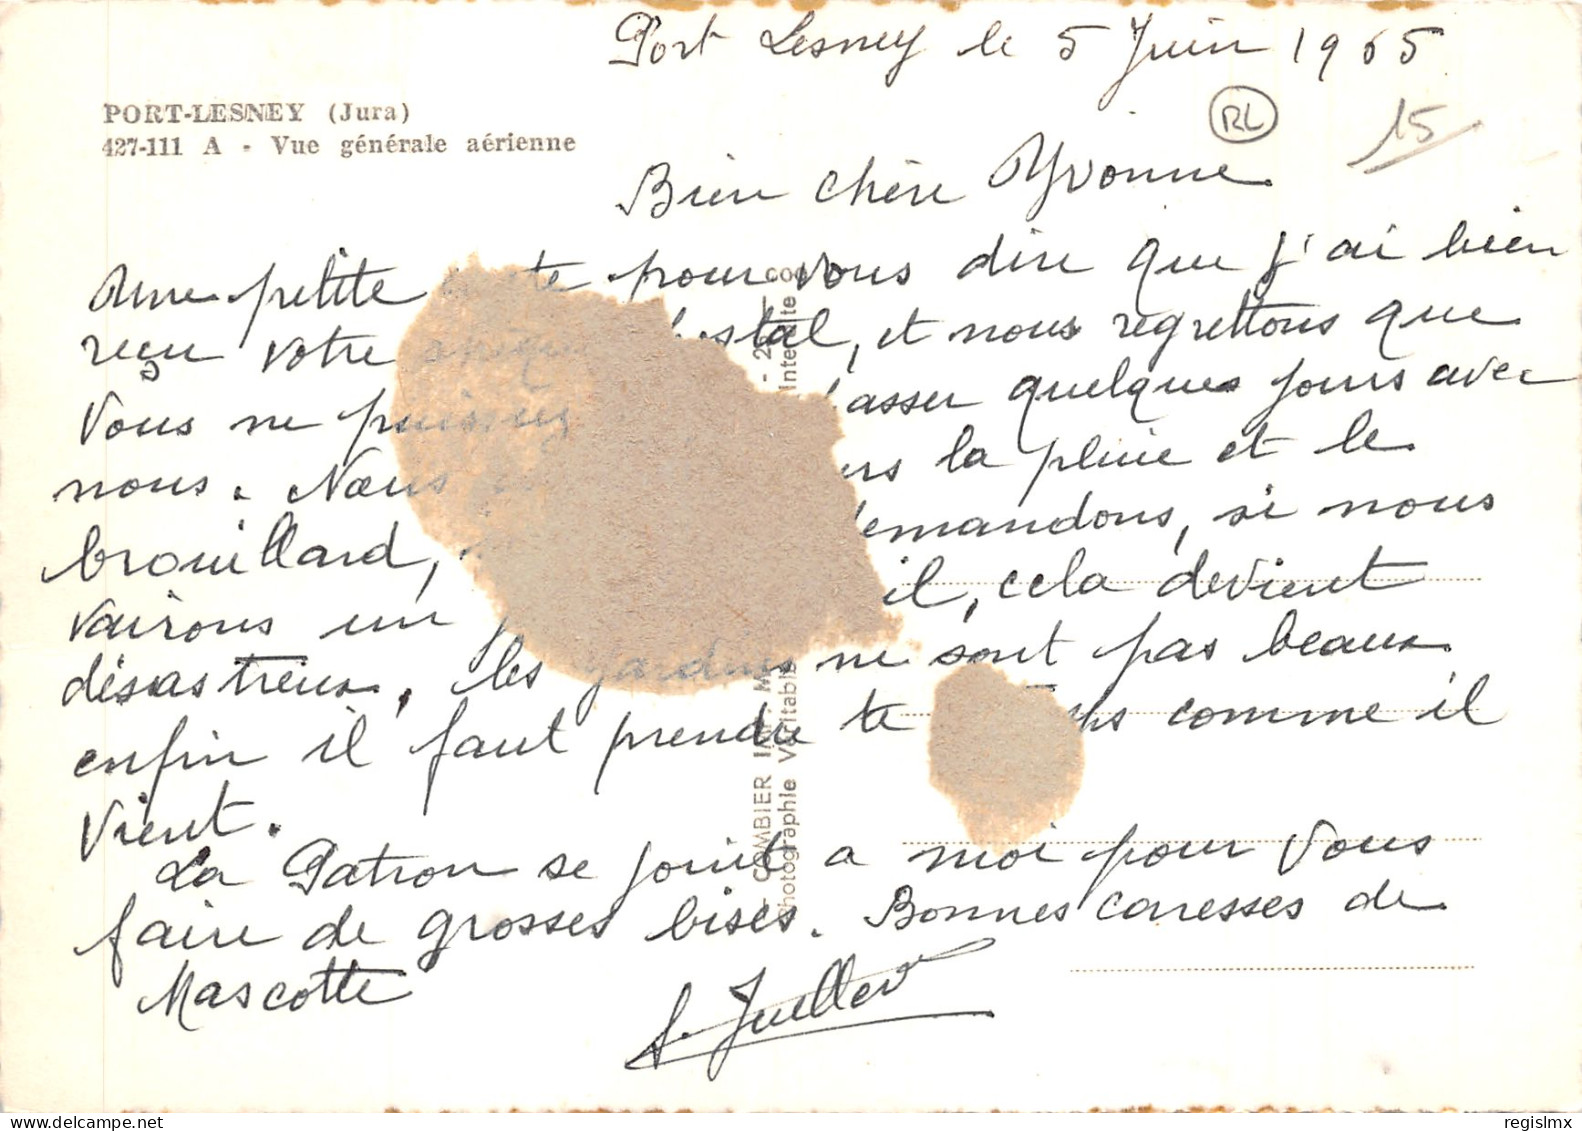 Port Lesney le 5 Juin 1965
PORT-LESNEY (Jura)
427-111 A - Vue générale aérienne
RL
15
Bien chère Yvonne
Une petite carte pour vous dire que j'ai bien
reçu votre postal, et nous regrettons que
Vous ne puissiez passer quelques jours avec
nous. Nous la pluie et le
brouillard, demandons, si nous
vairons un il, cela devient
désastreux, les jardins ne sont pas beaux
enfin il faut prendre te comme il
vient.
La Patron se joint a moi pour Vous
faire de grosses bises. Bonnes caresses de
Mascotte
COMBIER IM
Photographie Véritable Inte ite
regislmx